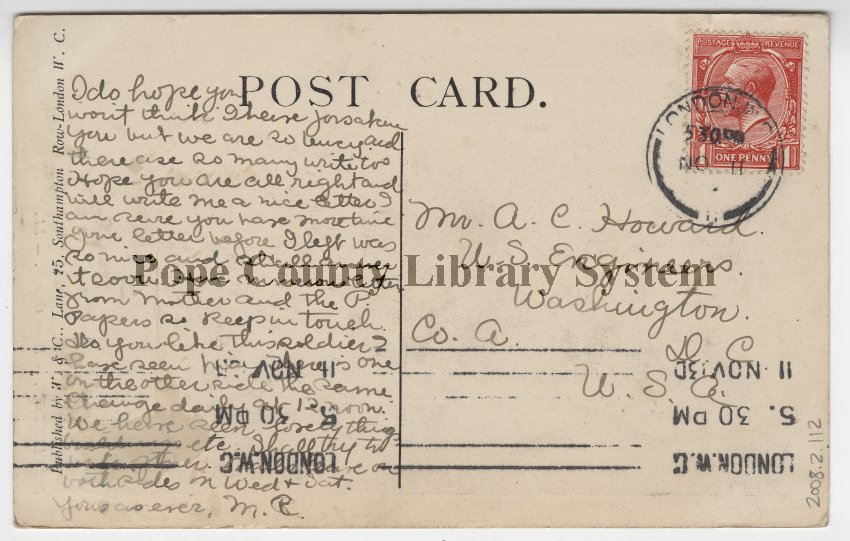 POST CARD.
POSTAGE REVENUE
ONE PENNY
LONDON.W.C.
5 30 PM
NO 11
I do hope you
wont think I have forsaken
you but we are so busy and
there are so many write too
Hope you are all right and
will write me a nice letter I
am sure you have more time
your letter before I left was
so nice and
it soon
from Mother and the P.
Papers so keep in touch.
Do you like this soldier?
Have seen there is one
on the other side the same
Change daily at 12 noon.
We have seen lovely things
etc. Shall try to
on
both sides on Wed & Sat.
Yours as ever, M. R.
Mr. A. C. Howard.
U. S. Engineers.
Washington
Co. A.
D C
U. S. A.
Pope County Library System
LONDON.W.C
5. 30 PM
11 NOV 13
LONDON.W.C
5. 30 PM
11 NOV
Published by W. & C. Lane, 25, Southampton Row-London W. C.
2008.2.112